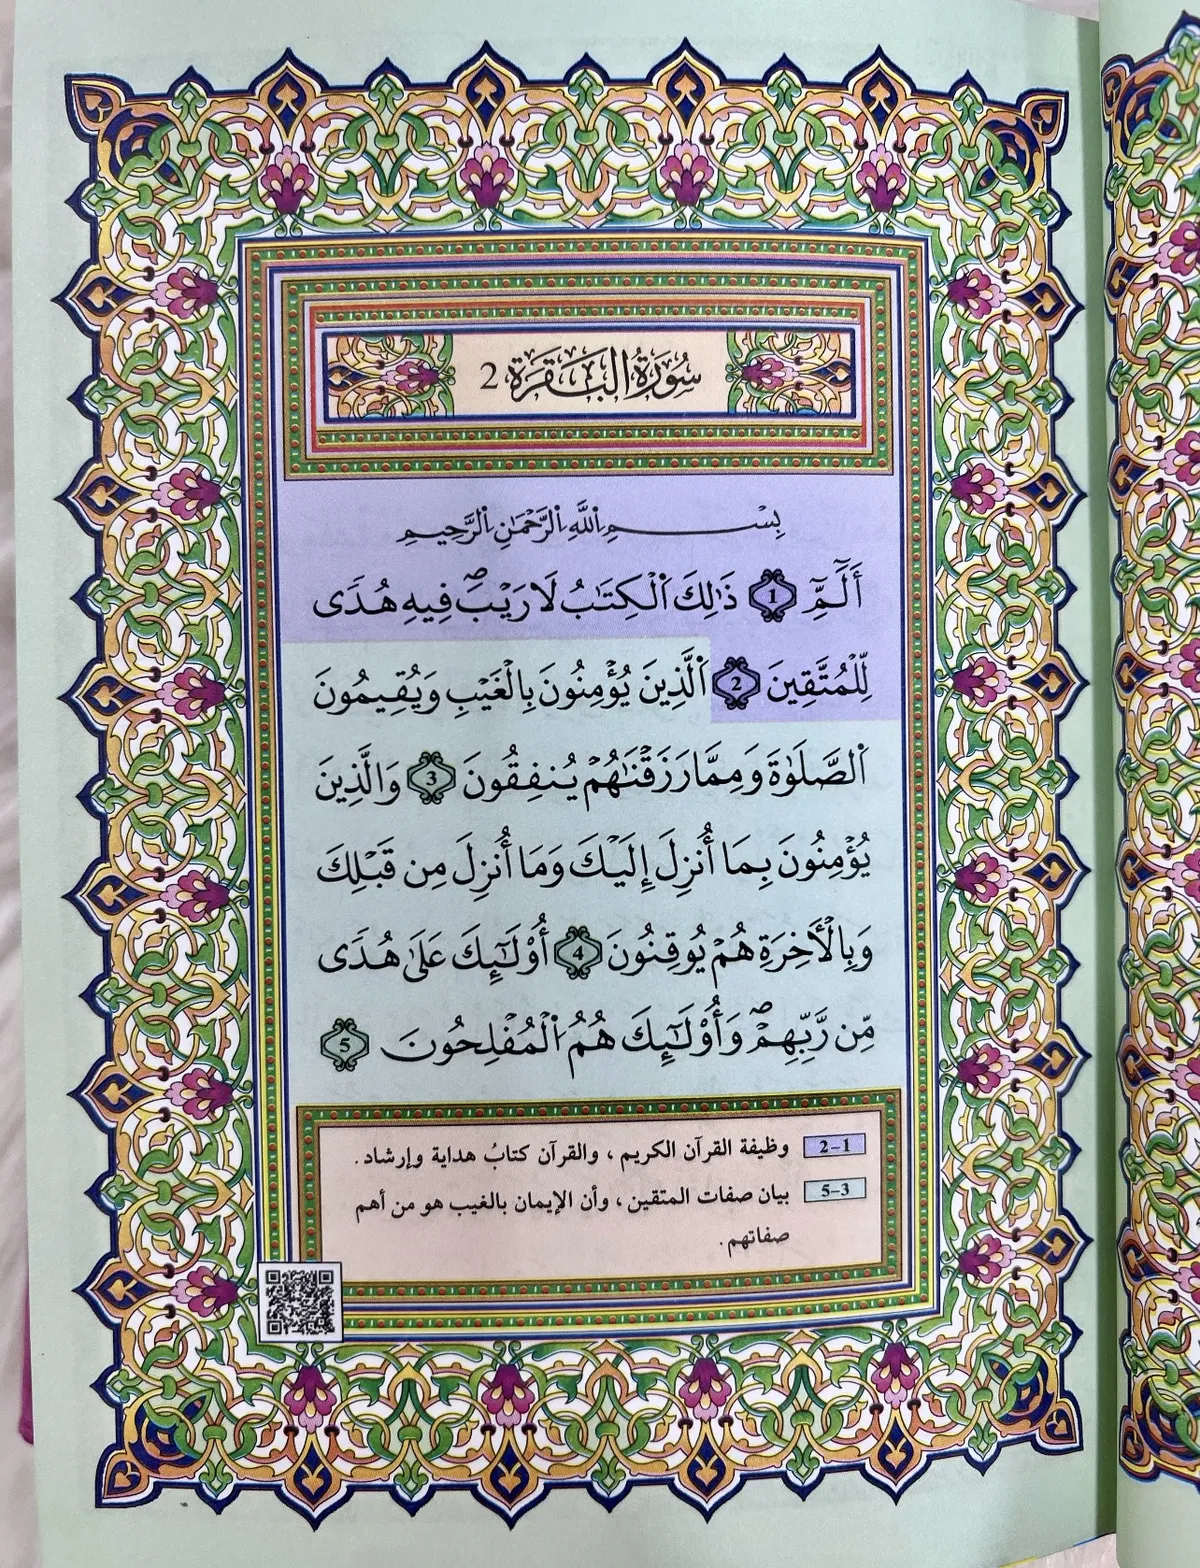 سُورَةُ الْبَقَرَةِ 2
بِسْمِ ٱللَّهِ ٱلرَّحْمَٰنِ ٱلرَّحِيمِ
أَلَٓمِّٓ 1 ذَٰلِكَ ٱلْكِتَٰبُ لَا رَيْبَۖ فِيهِ هُدَى
لِّلْمُتَّقِينَ 2 ٱلَّذِينَ يُؤْمِنُونَ بِٱلْغَيْبِ وَيُقِيمُونَ
ٱلصَّلَوٰةَ وَمِمَّا رَزَقْنَٰهُمْ يُنفِقُونَ 3 وَالَّذِينَ
يُؤْمِنُونَ بِمَا أُنزِلَ إِلَيْكَ وَمَا أُنزِلَ مِن قَبْلِكَ
وَبِالْأَخِرَةِ هُمْ يُوقِنُونَ 4 أُوْلَٰٓئِكَ عَلَىٰ هُدَى
مِّن رَّبِّهِمْۖ وَأُوْلَٰٓئِكَ هُمُ ٱلْمُفْلِحُونَ 5
2-1 وظيفة القرآن الكريم ، والقرآن كتابُ هداية وإرشاد .
5-3 بيان صفات المتقين ، وأن الإيمان بالغيب هو من أهم
صفاتهم .